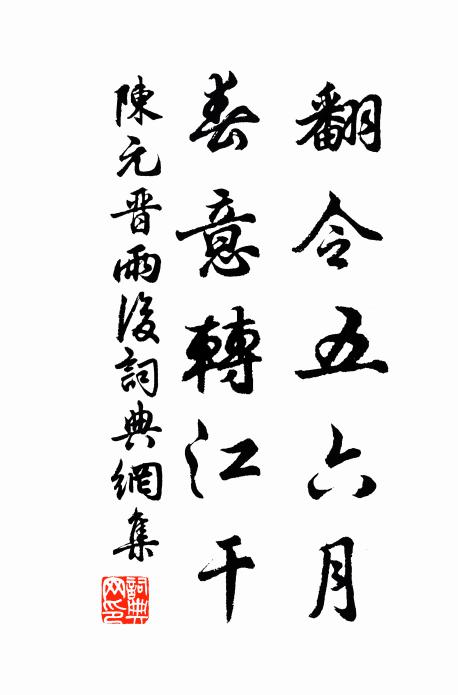 翻令五六月
春意轉江干
陳元晋雨後詞典網集
詞典網印